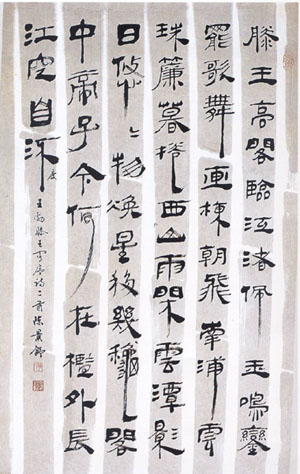 滕王高閣臨江渚佩玉鳴鸞
罷歌舞画棟朝飛南浦雲
珠簾暮捲西山雨閑雲潭影
日悠々物煥星移幾穐閣
中帝子今何在檻外長
江空自流
度
王勃滕王閣序詩陳景舒